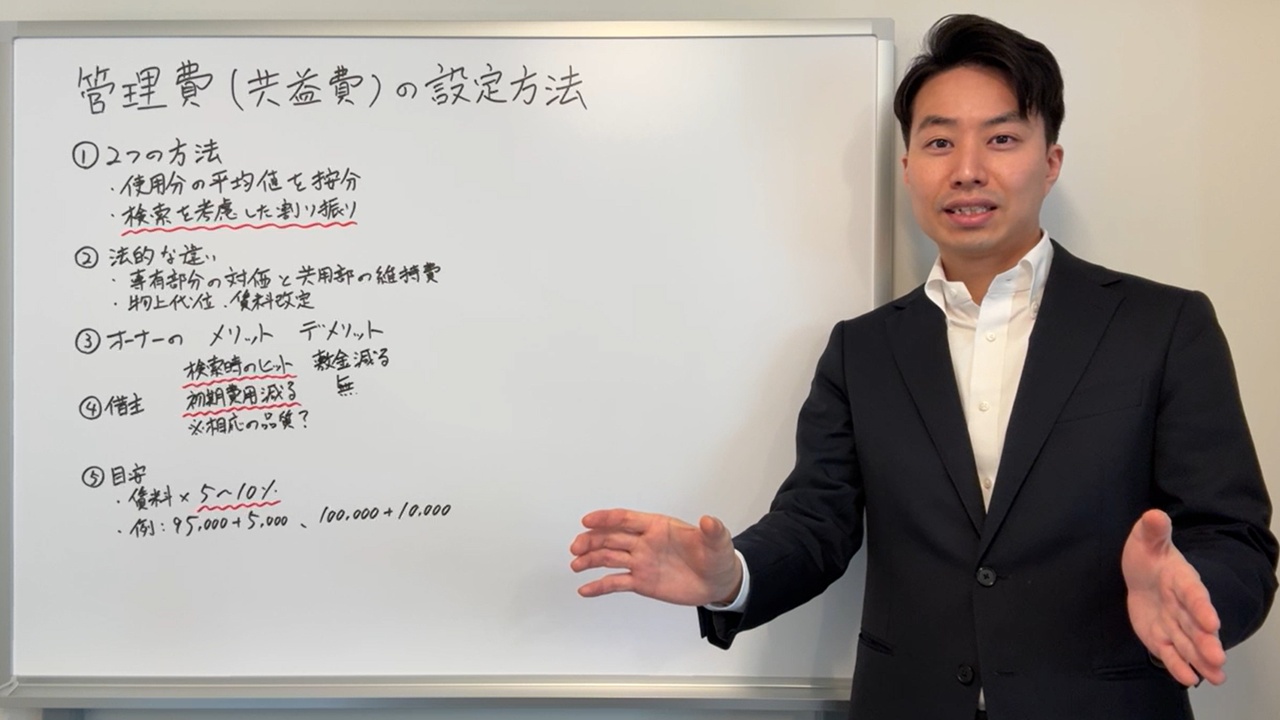 管理費(共益費)の設定方法
① 2つの方法
・使用分の平均値を按分
・検索を考慮した割り振り
② 法的な違い
・専有部分の対価と共用部の維持費
・物上代位、賃料改定
③ オーナーの メリット デメリット
検索時のヒット 敷金減る
④ 借主 初期費用減る 無
※相応の品質?
⑤ 目安
・賃料×5〜10%
・例:95,000+5,000、100,000+10,000